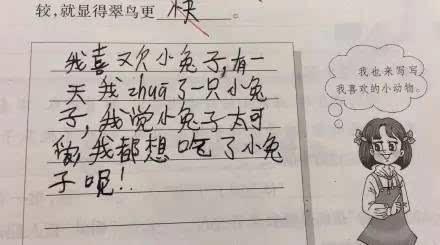 较,就显得翠鸟更 快 。
我喜欢小兔子,有一
天我zhuā了一只小兔
子,我觉小兔子太可
爱,我都想吃了小兔
子呢!
我也来写写
我喜欢的小动物。